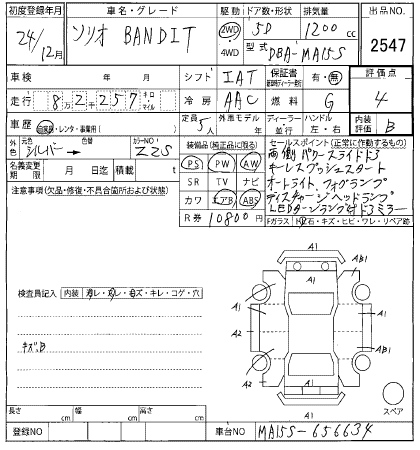 初度登録年月
24/12月
車名・グレード
ソリオ BANDIT
駆動 2WD 4WD
ドア数・形状 5D
排気量 1200 cc
型式 DBA-MA15S
出品NO. 2547
車検 年 月
シフト IAT
保証書 有・無
評価点 4
走行 8万2千257 キロ マイル
冷房 AAC
燃料 G
車歴 自家用・レンタ・事業用( )
定員 5人
外車モデル 年
ディーラー 並行
ハンドル 左・右
内装評価 B
外色 元色 シルバー→ 色替
カラーNO. Z2S
装備品(純正品に限る)
セールスポイント(正常に作動するもの)
名義変更期限 月 日
積載 t
PS PW AW
SR TV ナビ
カワ エアB ABS
R券 10800円
両側パワースライドドア
キーレスプッシュスタート
オートライト、フォグランプ
ディスチャージヘッドランプ
LEDターンランプ付ドアミラー
注意事項(欠品・修復・不具合箇所および状態)
Fガラス トビ石・キズ・ヒビ・ワレ・リペア跡
A1
A1
AB1
検査員記入 内装 ヨゴレ・スレ・キズ・キレ・コゲ・穴
A1
A1
キズ,B
A2
A1
AB1
A2
A1
スペア
長さ cm 幅 cm 高さ cm
登録NO
車台NO MA15S-656634